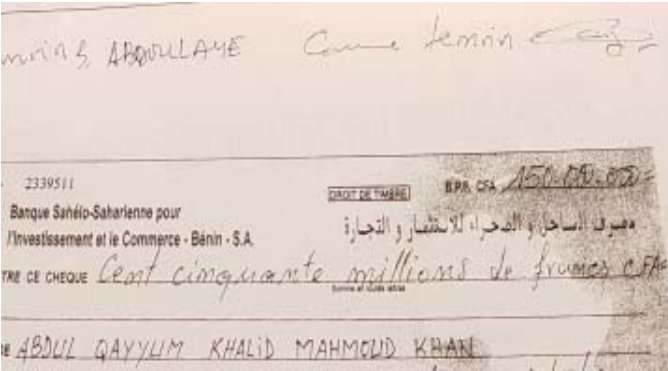 ABDOULLAYE Comme temoin
2339511
DROIT DE TIMBRE
B.P.B. CFA 150.000.000=
Banque Sahélo-Saharienne pour
l'Investissement et le Commerce - Bénin - S.A.
مصرف الساحل و الصحراء للاستثمار و التجارة
TRE CE CHEQUE Cent cinquante millions de francs CFA
Somme en toutes lettres
ABDUL QAYYUM KHALID MAHMOUD KHAN